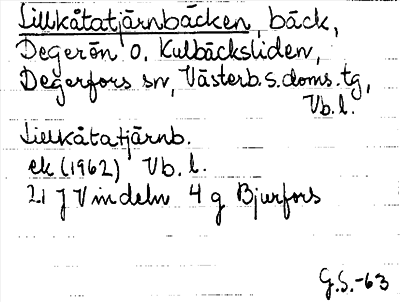 Lillkåtatjärnbäcken, bäck,
Degerön o. Kulbäcksliden,
Degerfors sn, Västerb.s.doms.tg,
Vb.l.
Lillkåtatjärnb.
ek (1962) Vb.l.
21 J Vindeln 4 g Bjurfors
G.S.-63